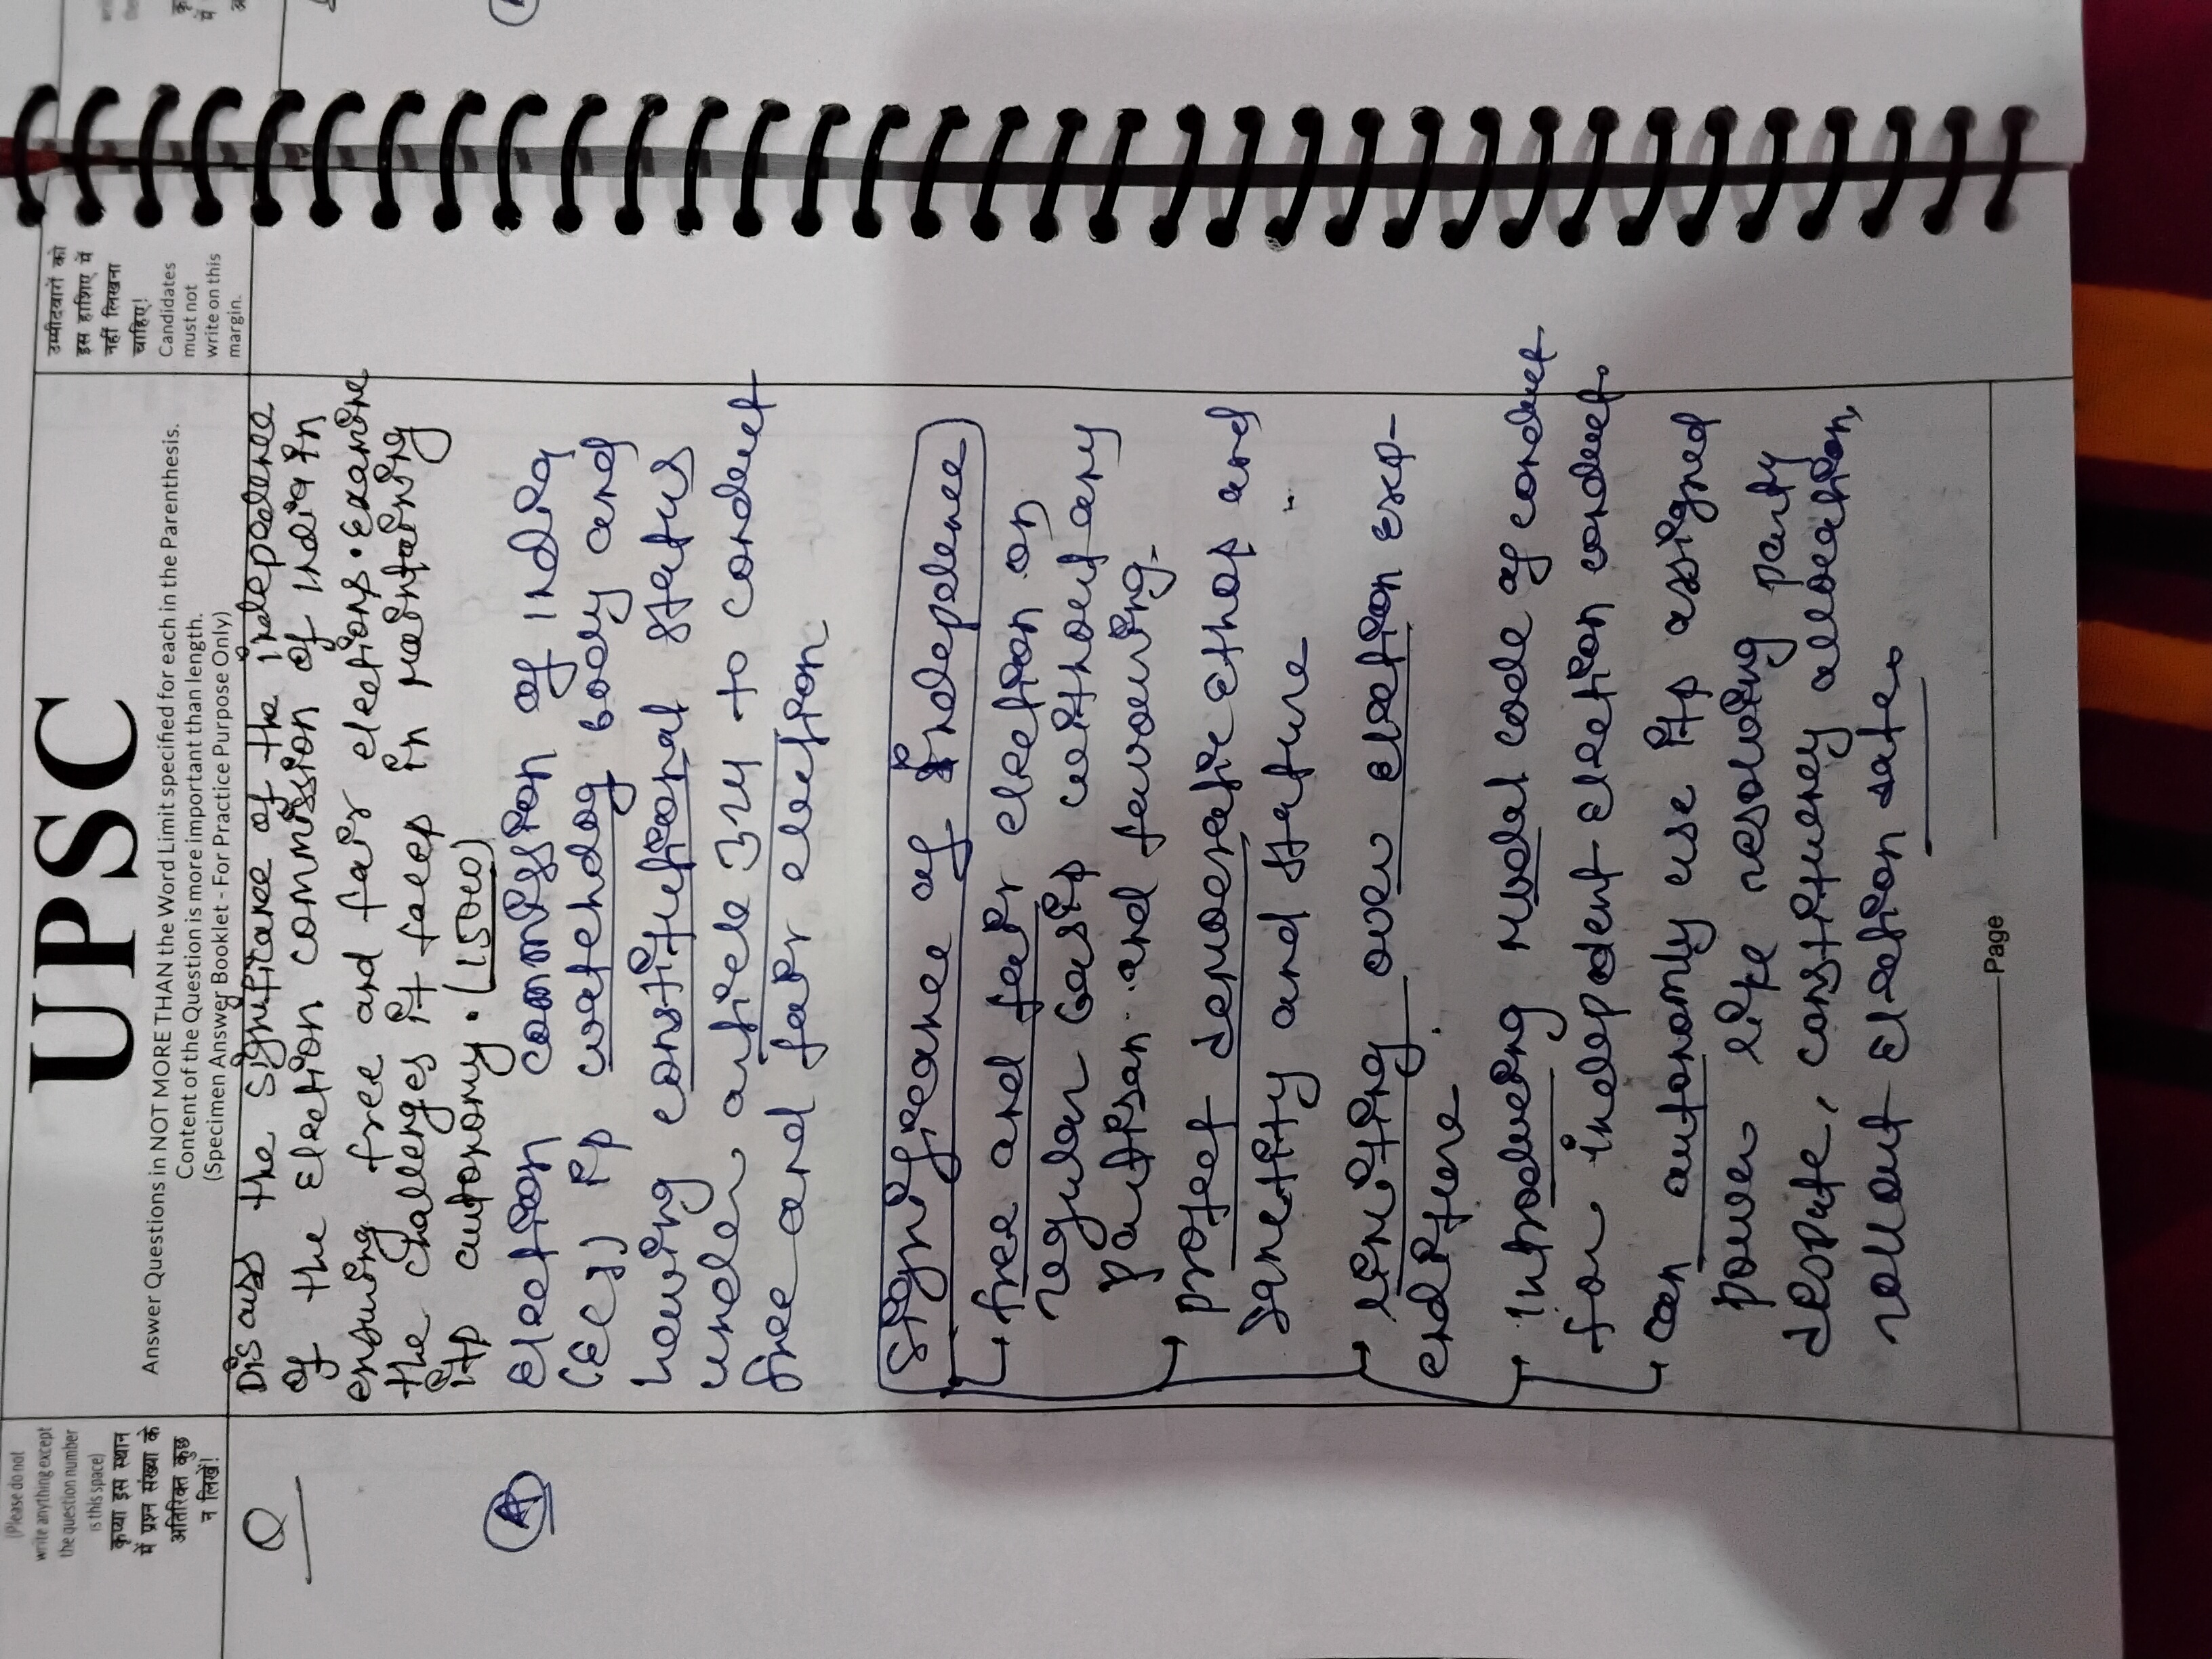 (Please do not
write anything except
the question number
is this space)
कृप्या इस स्थान
में प्रश्न संख्या के
अतिरिक्त कुछ
न लिखें!
UPSC
Answer Questions in NOT MORE THAN the Word Limit specified for each in the Parenthesis.
Content of the Question is more important than length.
(Specimen Answer Booklet - For Practice Purpose Only)
उम्मीदवारों को
इस हाशिए में
नहीं लिखना
चाहिए!
Candidates
must not
write on this
margin.
Q
Discuss the significance of the indepedence
of the Election commission of India in
ensuring free and fair elections. Examine
the challenges it faces in maintaining
its autonomy. (150w)
A
Election commission of India
(ECI) is watchdog body and
having constitutional status
under article 324 to conduct
free and fair election
Significance of Independence
free and fair election on
regular basis without any
partisan and favouring.
protect democratic ethos and
sanctity and stature
limiting over election exp-
enditure
Introducing model code of conduct
for indepedent election conduct.
can autonomy use its assigned
power like resolving party
dispute, constituency allocation,
rollout election dates
Page